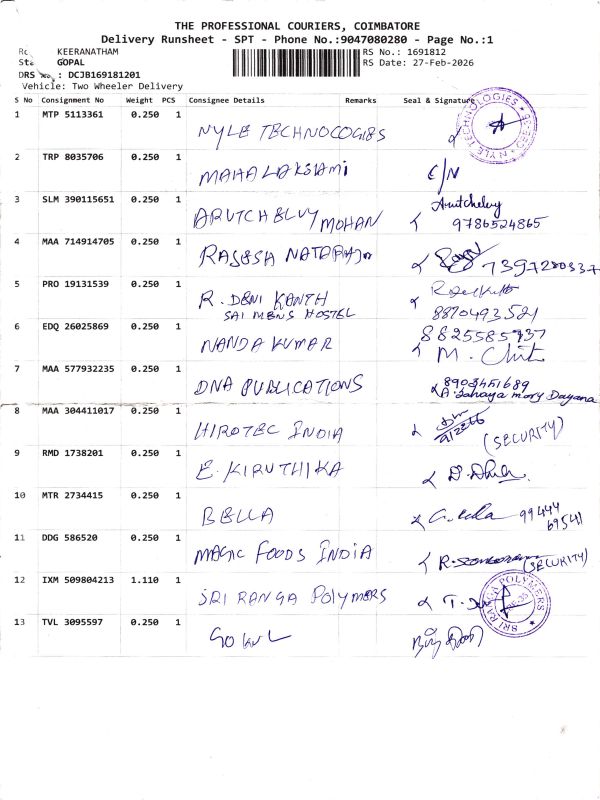 THE PROFESSIONAL COURIERS, COIMBATORE
Delivery Runsheet - SPT - Phone No.:9047080280 - Page No.:1
KEERANATHAM RS No.: 1691812
GOPAL RS Date: 27-Feb-2026
DRS No.: DCJB169181201
Vehicle: Two Wheeler Delivery
S No Consignment No Weight PCS Consignee Details Remarks Seal & Signature
1 MTP 5113361 0.250 1 NYLE TECHNOCOGIES NYLE TECHNOLOGIES
2 TRP 8035706 0.250 1 MAHALAKSHMI C/N
3 SLM 390115651 0.250 1 ARUTCHELVY MOHAN Arutchelvy
9786524865
4 MAA 714914705 0.250 1 RAJESH NATARAJAN 7397280337
5 PRO 19131539 0.250 1 R. DENI KANTH
SAI MENS HOSTEL
8870493521
6 EDQ 26025869 0.250 1 NANDA KUMAR 8825585937
7 MAA 577932235 0.250 1 DNA PUBLICATIONS 8903451689
A. Sahaya mary Dayana
8 MAA 304411017 0.250 1 HIROTEC INDIA (SECURITY)
9 RMD 1738201 0.250 1 E. KIRUTHIKA
10 MTR 2734415 0.250 1 BELLA 99444
69541
11 DDG 586520 0.250 1 MAGIC FOODS INDIA (SECURITY)
12 IXM 509804213 1.110 1 SRI RANGA POLYMERS SRI RANGA POLYMERS
13 TVL 3095597 0.250 1 GOKUL